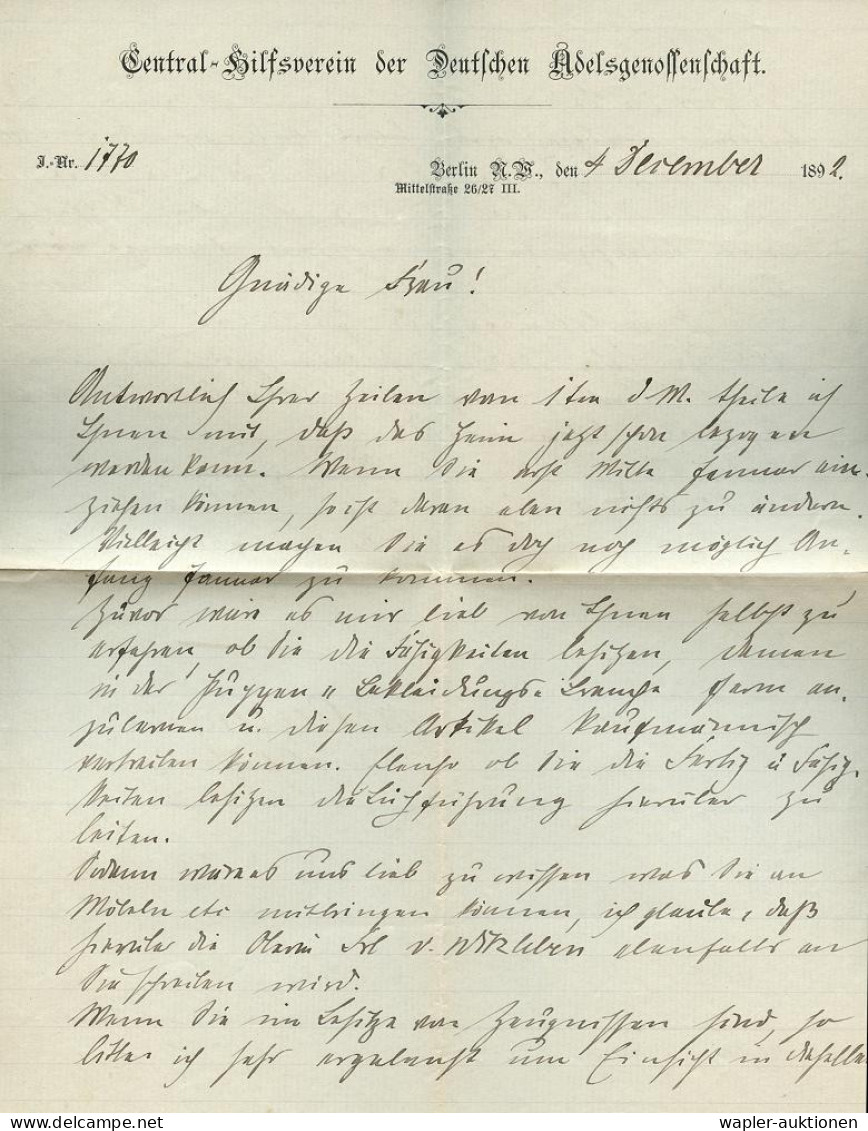 Central-Hilfsverein der Deutschen Adelsgenossenschaft.
J.-Nr. 1770
Berlin N.W., den 4 Dezember 1892.
Mittelstraße 26/27 III.
Gnädige Frau!
Antwortlich Ihrer Zeilen vom 1ten d M. theile ich
Ihnen mit, daß das Heim jetzt schon bezogen
werden kann. Wenn Sie erst Mitte Januar ein-
ziehen können, so ist daran eben nichts zu ändern.
Vielleicht machen Sie es doch noch möglich An-
fang Januar zu kommen.
Zuvor wäre es mir lieb von Ihnen selbst zu
erfahren, ob Sie die Fähigkeiten besitzen, Damen
in der Puppen-Bekleidungs-Branche an-
zulernen u. diesen Artikel kaufmännisch
vertreiben können. Ebenso ob Sie die Fertig u Fähig-
keiten besitzen die Buchführung hierüber zu
leiten.
Sodann wäre es uns lieb zu wissen was Sie an
Möbeln etc mitbringen können, ich glaube, daß
hierüber die Oberin Frl v. Witzleben ebenfalls an
Sie schreiben wird.
Wenn Sie im Besitze von Zeugnissen sind, so
bitte ich sehr ergebenst um Einsicht in dieselben
wapler-auktionen